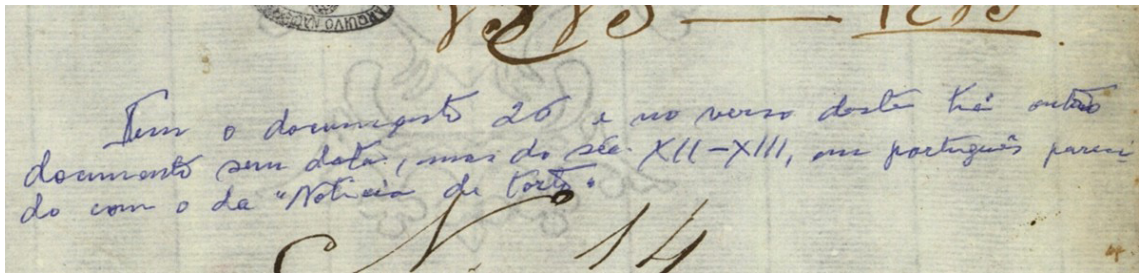 ARQUIVO NAC
Tem o documento 26 e no verso deste há outro
documento sem data, mas do séc. XII-XIII, em português pareci
do com o da "Notícia de Torto"
N. 14